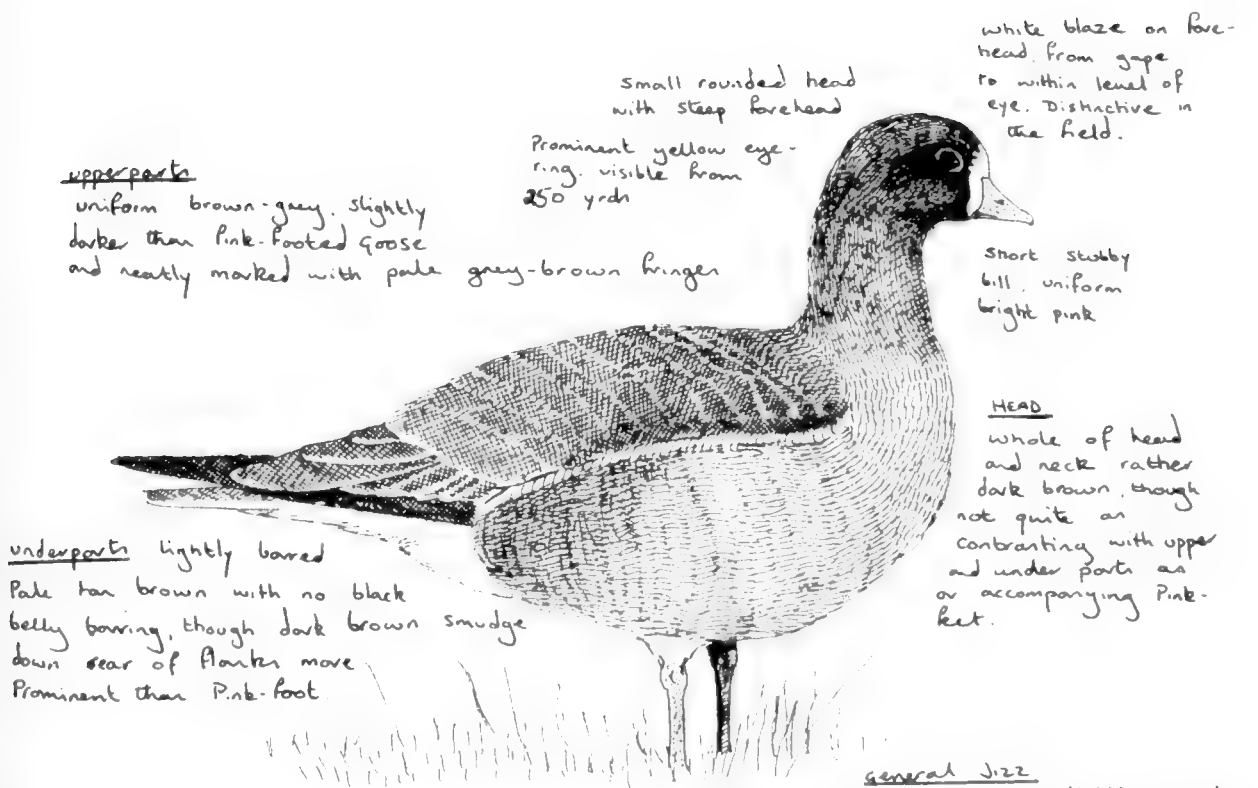 white blaze on fore-
head. from gape
to within level of
eye. Distinctive in
the field.
small rounded head
with steep forehead
Prominent yellow eye-
ring. visible from
250 yrds
upperparts
uniform brown-grey. slightly
darker than Pink-footed Goose
and neatly marked with pale grey-brown fringes
short stubby
bill. uniform
bright pink
HEAD
whole of head
and neck rather
dark brown, though
not quite as
contrasting with upper
and under parts as
on accompanying Pink-
feet.
underparts lightly barred
Pale tan brown with no black
belly barring, though dark brown smudge
down rear of flanks more
Prominent than Pink-foot
general Jizz